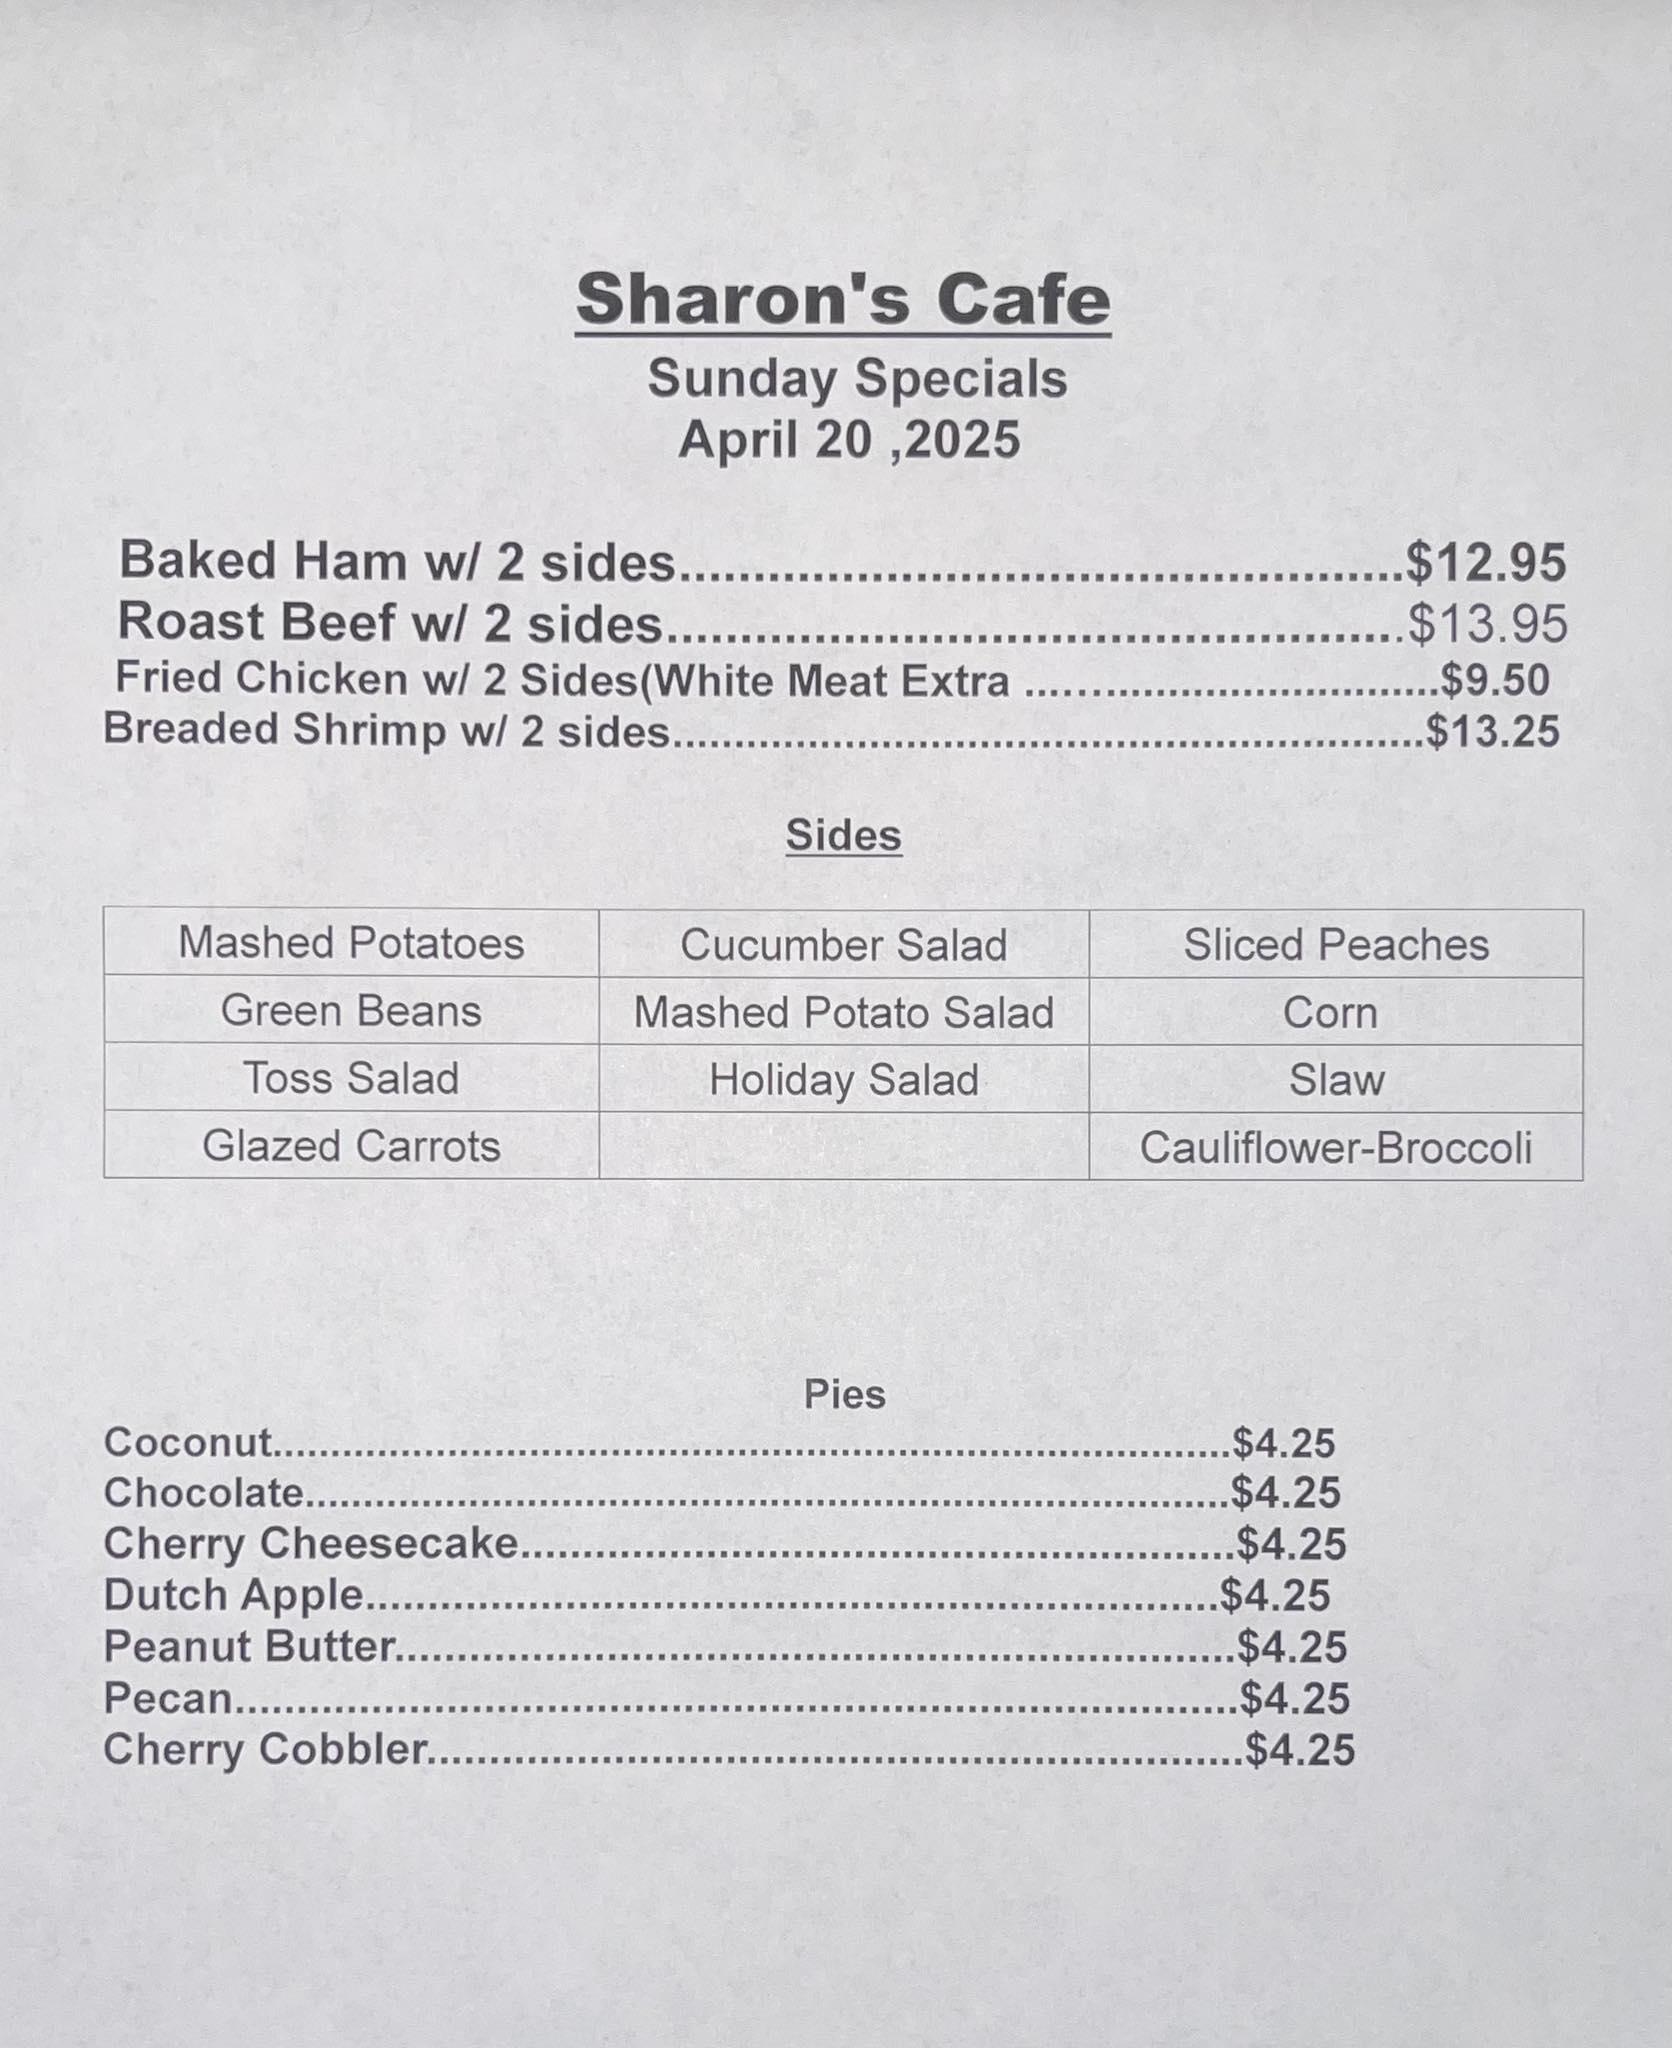 Sharon's Cafe
Sunday Specials
April 20 ,2025
Baked Ham w/ 2 sides.................................................$12.95
Roast Beef w/ 2 sides..................................................$13.95
Fried Chicken w/ 2 Sides(White Meat Extra ..................................$9.50
Breaded Shrimp w/ 2 sides.............................................................$13.25
Sides
Mashed Potatoes Cucumber Salad Sliced Peaches
Green Beans Mashed Potato Salad Corn
Toss Salad Holiday Salad Slaw
Glazed Carrots Cauliflower-Broccoli
Pies
Coconut..............................................................................$4.25
Chocolate...........................................................................$4.25
Cherry Cheesecake..........................................................$4.25
Dutch Apple.....................................................................$4.25
Peanut Butter....................................................................$4.25
Pecan.................................................................................$4.25
Cherry Cobbler..................................................................$4.25